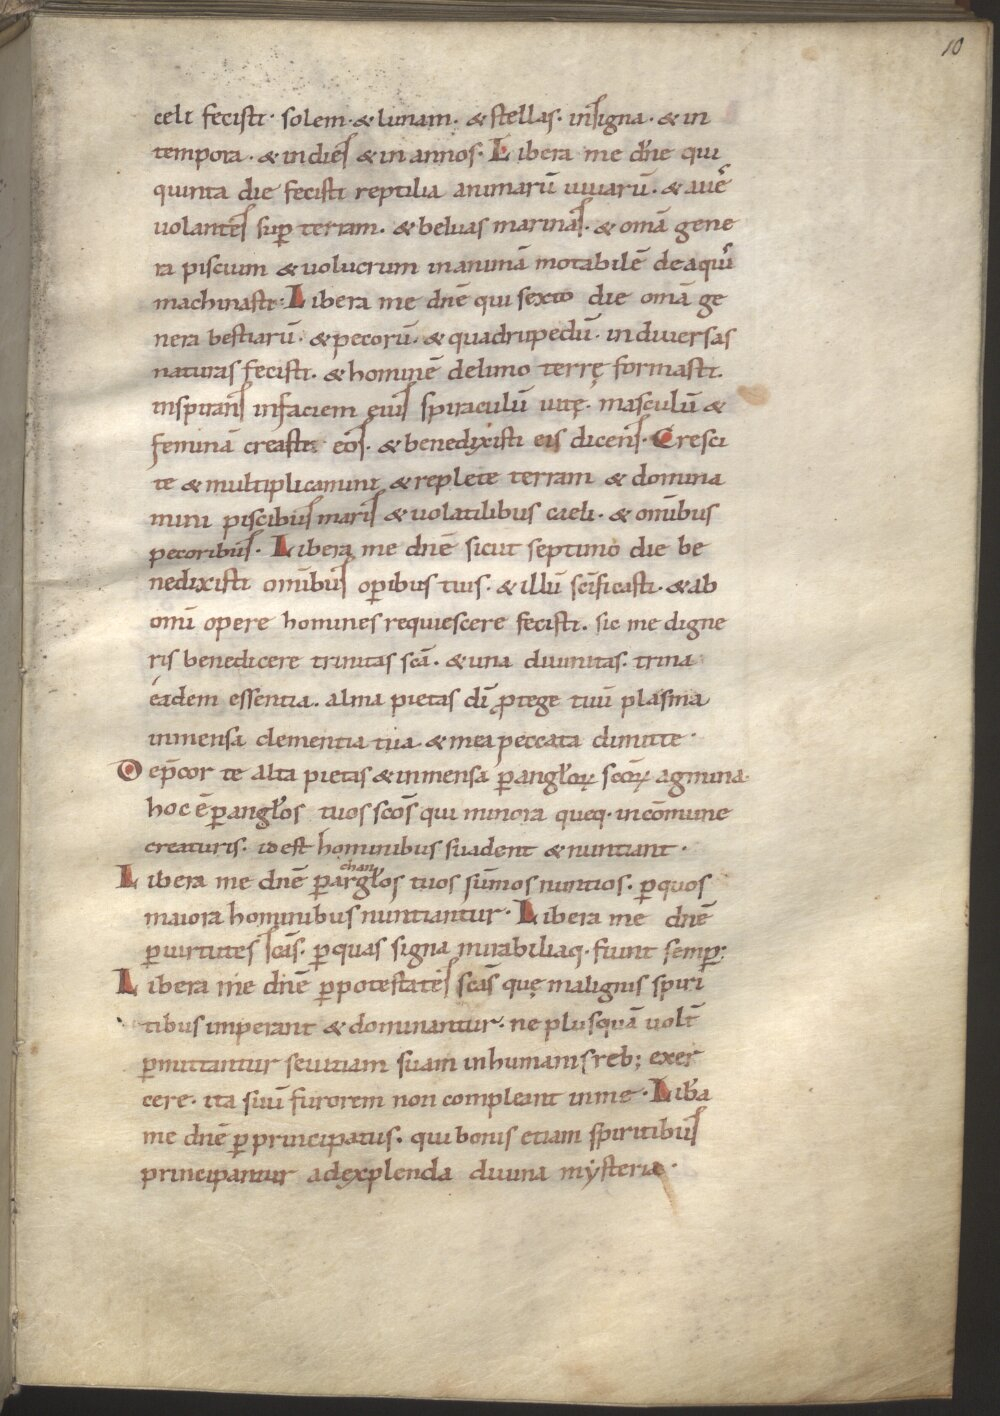 10
celi fecisti· solem· & lunam· & stellas· insigna· & in
tempora· & in dies & in annos· Libera me dn̄e qui
quinta die fecisti reptilia animarū vivarū· & avē
volantes suꝑ terram· & beluas marinas· & omā gene
ra piscium & volucrum in animā motabilē de aquis
machinasti· Libera me dn̄e qui sexto die omā ge
nera bestiarū· & pecorū· & quadrupedū· in diversas
naturas fecisti· & hominē de limo terrę formasti·
inspirans in faciem ęius spiraculū vitę· masculū &
feminā creasti eos· & benedixisti eis dicens· Cresci
te & multiplicamini & replete terram & domina
mini piscibus maris & volatilibus caeli· & omībus
pecoribus· Libera me dn̄e sicut septimo die be
nedixisti omībus oꝑibus tuis· & illū sc̄ificasti· & ab
omī opere homines requiescere fecisti· sic me digne
ris benedicere trinitas sc̄a· & una divinitas· trina
éadem essentia· alma pietas dī ꝓtege tuū plasma
inmensa clementia tua & mea peccata dimitte·
Dep̄cor te alta pietas & inmensa ꝑ angl̄oꝝ sc̄oꝝ agmina·
hoc ē ꝑ angl̄os tuos sc̄os qui minora queq· in cōmune
creaturis· id est hominibus suadent & nuntiant·
chan
Libera me dn̄e ꝑ argl̄os tuos sūmos nuntios· ꝑ quos
maiora hominibus nuntiantur· Libera me dn̄e
ꝑ virtutes sc̄as· ꝑ quas signa mirabiliaq· fiunt semꝑ;
Libera me dn̄e ꝑ potestates sc̄as quę malignis spiri
tibus imperant & dominantur· ne plusquā volt̄
ꝑmittantur sevitiam suam in humanis reb; exer
cere· ita suū furorem non compleant in me· Lib̄a
me dn̄e ꝑ principatus· qui bonis etiam spiritibus
principantur ad explenda divina mẏsteria·